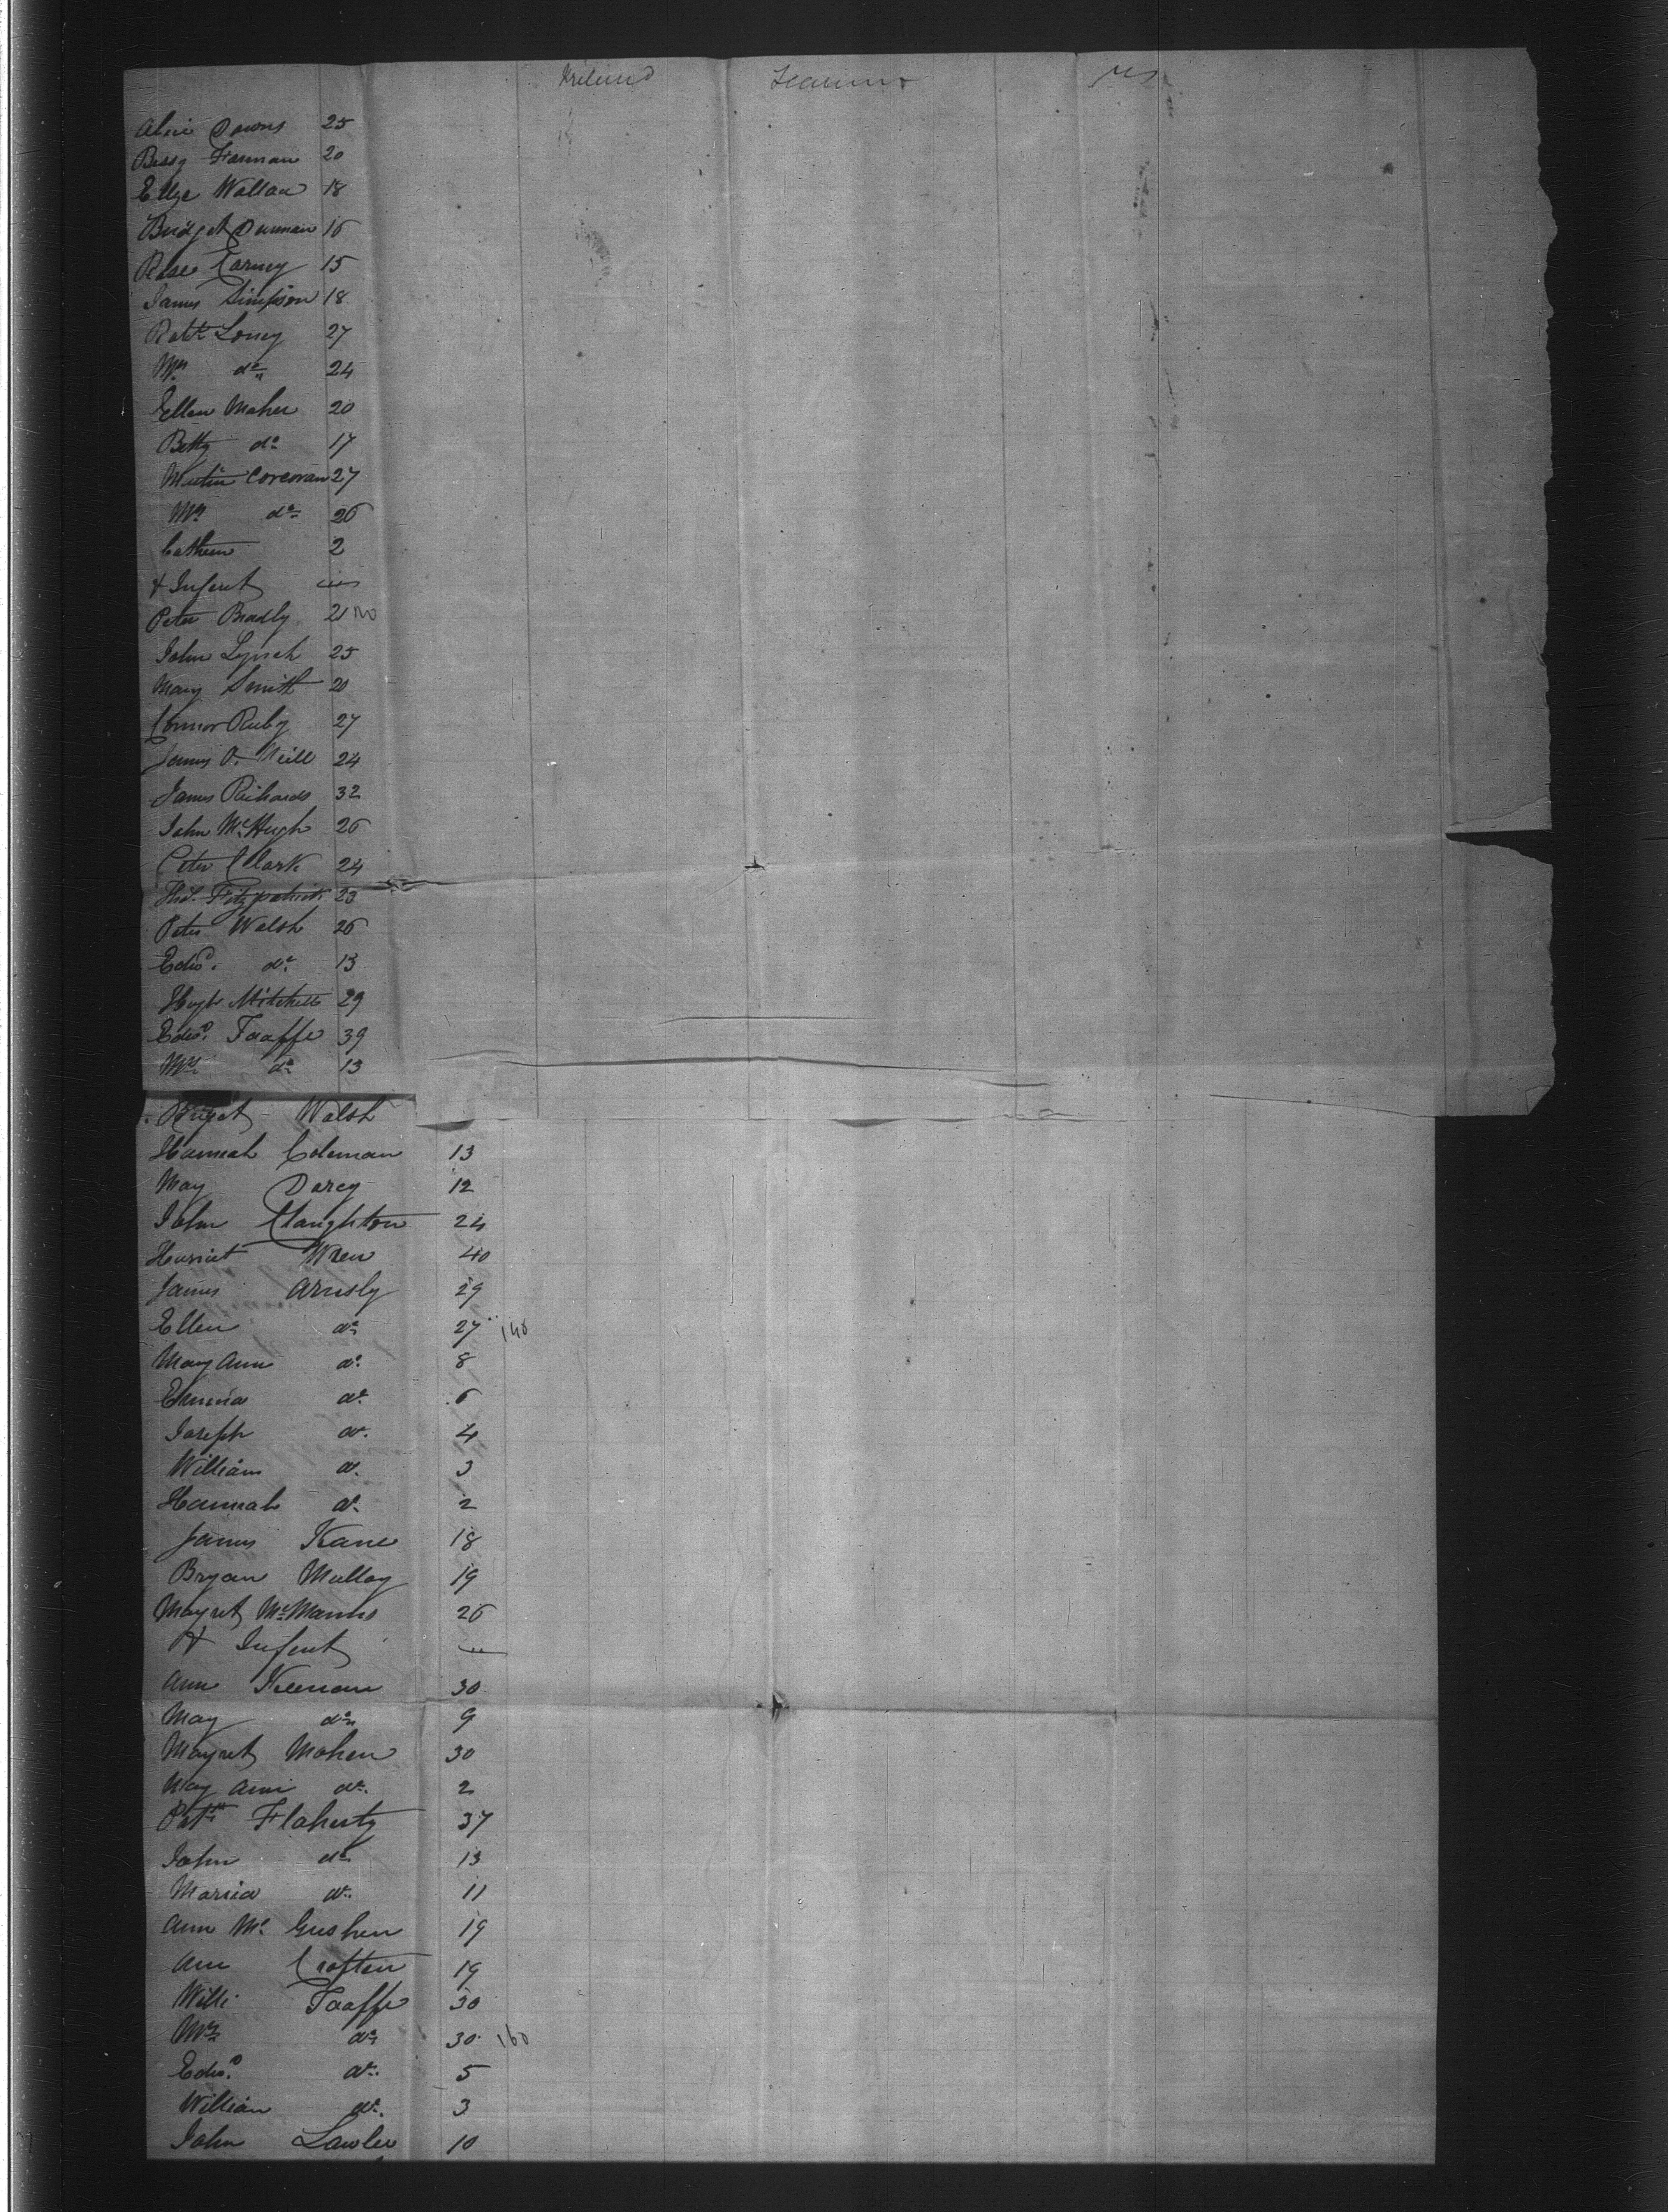 Ireland
Alice Downs 25
Bessy Farman 20
Ellze Wallace 18
Bridget Dunnan 16
Rose Carney 15
James Simpson 18
Patk Loney 27
Mrs do 24
Ellen Maher 20
Betty do 17
Martin Corcoran 27
Mrs do 26
Cathern 2
& Infent
Peter Bradly 21
John Lynch 25
Mary Smith 20
Connor Ruby 27
James O. Neill 24
James Richards 32
John McHugh 26
Peter Clark 24
Thos. Fitzpatrick 23
Peter Walsh 26
Edwd. do 13
Hugh Mitchell 29
Edwd. Taaffe 39
Mrs do 13
Walsh
Hannah Coleman 13
May Darcy 12
John Claughton 24
Harriet Wren 40
James Arnsly 29
Ellen do 27 140
Mary Ann do. 8
Emma do. 6
Joseph do. 4
William do. 3
Hannah do. 2
James Kane 18
Bryan Mulloy 19
Magret McManus 26
& Infent
Ann Keenan 30
May do 9
Magret Mahen 30
May Ann do. 2
Patk Flaherty 37
John do 13
Maria do. 11
Ann Mc Gushen 19
Ann Croften 19
Willi Taaffe 30
Mrs do 30 160
Edwd. do. 5
William do. 3
John Lawler 10